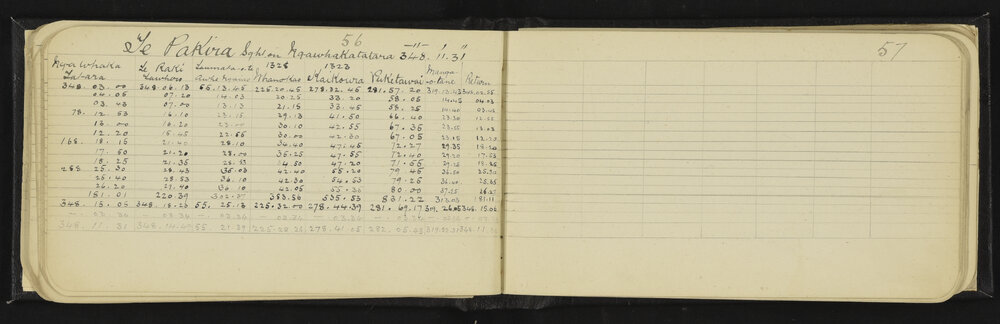 56
Te Pakira Sght on Ngawhakatatara 348. 11. 31
1328 1323
Ngawhaka Te Raki Taumata Manga
Tatara Whanokao Kaikoura Puketawai otane Return
348. 03. 00 348. 06. 13 55. 13. 45 225. 20. 45 278. 32. 45 281. 57. 20
04. 05 07. 20 14. 03 20. 25 33. 20 58. 05 14. 45 04. 03
03. 43 07. 00 13. 13 21. 15 33. 45 58. 25 14. 40
78. 12. 53 16. 10 23. 15 29. 13 41. 50 66. 40 23. 30 12. 55
13. 00 16. 20 23. 00 30. 10 42. 55 67. 35 23. 55 13. 03
12. 20 15. 45 22. 55 30. 00 42. 30 67. 05 23. 15 12. 20
168. 18. 15 21. 40 28. 10 34. 40 47. 45 72. 27 29. 35 18. 20
17. 50 21. 20 28. 00 35. 25 47. 55 72. 40 29. 20 17. 53
18. 25 21. 35 28. 53 47. 20 71. 55 29. 15 18. 25
258. 25. 30 28. 43 35. 03 42. 40 55. 20 79. 45 36. 50 25. 30
25. 40 28. 53 36. 10 42. 30 54. 53 79. 25 36. 40 25. 35
26. 20 29. 40 36. 10 42. 05 55. 35 80. 00 37. 25 26. 27
181. 01 220. 39 302. 37 383. 56 535. 53 831. 22 313. 03 181. 11
348. 15. 05 348. 18. 23 55. 25. 13 225. 32. 00 278. 44. 39 281. 69. 17 319. 26. 05 348. 15. 06
03. 34 03. 34 03. 34 03. 34 03. 34
348. 11. 31 348. 14. 49 55. 21. 39 225. 28. 26 278. 41. 05 282. 05. 43 319. 22. 31
57